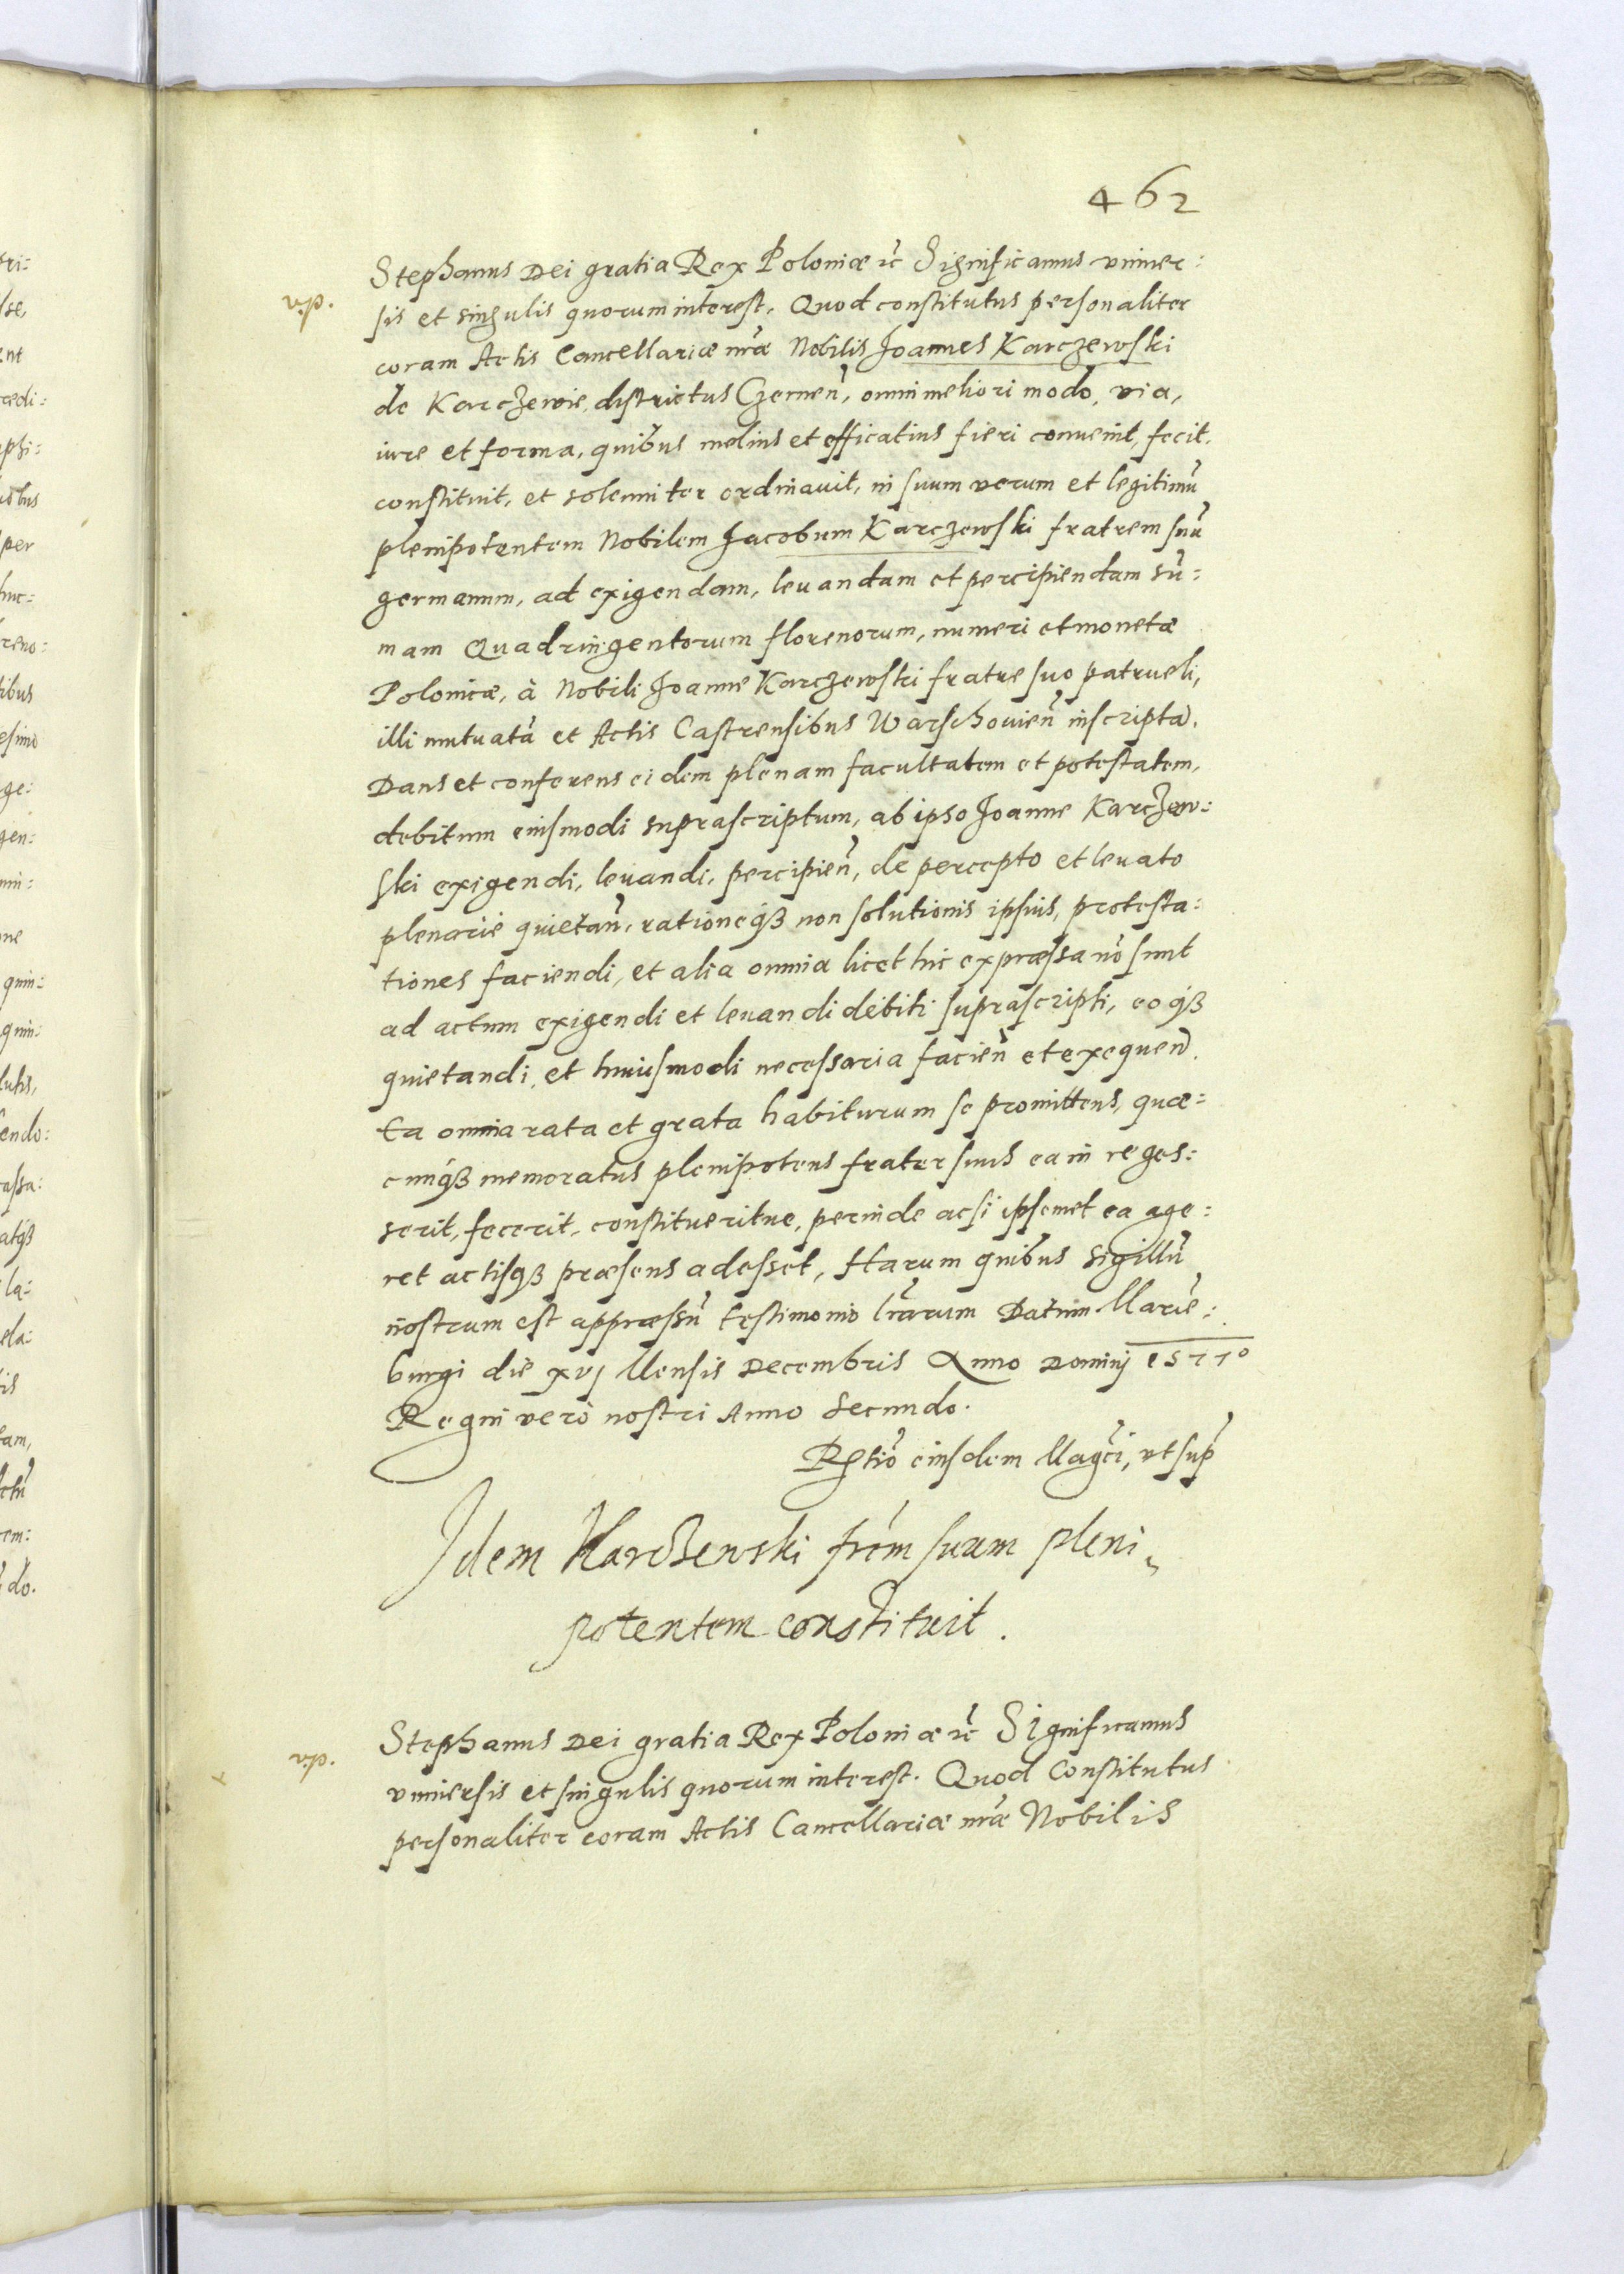 462
Stephanus Dei gratia Rex Poloniæ &c̃ Significamus vniuer:
v.p.
sis et singulis quorum interest, Quod constitutus personaliter
coram Actis Cancellariæ nr̃æ Nobilis Joannes Karczewski
de Karczewie, districtus Czernen̄, omni meliori modo, via,
iure et forma, quibus melius et efficatius fieri conuenit, fecit,
constituit, et solenniter ordinauit, in suum verum et legitimū
plenipotentem Nobilem Jacobum Karczewski fratrem suū
germanum, ad exigendam, leuandam et percipiendam sū=
mam Quadringentorum florenorum, numeri et monetæ
Polonicæ, à Nobili Joanne Karczewski fratre suo patrueli,
illi mutuatā et Actis Castrensibus Warschouien̄ inscripta.
Dans et conferens eidem plenam facultatem et potestatem,
debitum eiusmodi suprascriptum, ab ipso Joanne Karczew:
ski exigendi, leuandi, percipien̄, de percepto et leuato
plenarie quietan̄, rationeqȝ non solutionis ipsius, protesta:
tiones faciendi, et alia omnia licet hic expræssa nō sunt
ad actum exigendi et leuandi debiti suprascripti, eoqȝ
quietandi, et huiusmodi necessaria facien̄ et exequen̄.
Ea omnia rata et grata habiturum se promittens, quæ=
cunqȝ memoratus plenipotens frater suus ea in re ges:
serit, fecerit, constitueritue, perinde acsi ipsemet ea age:
ret actisqȝ præsens adesset, Harum quibus Sigillū
nostrum est appræssū testimonio lr̃arum Datum Marie:
burgi die xvj Mensis Decembris Anno Dominj 1577º
Regni verò nostri Anno Secundo.
Rel̃tio eiusdem Magc̃i, vt sup̃
Idem Karczewski frēm suum pleni=
potentem constituit.
Stephanus Dei gratia Rex Poloniæ &c̃ Significamus
v.p.
vniuersis et singulis quorum interest. Quod Constitutus
personaliter coram Actis Cancellariæ nr̃æ Nobilis